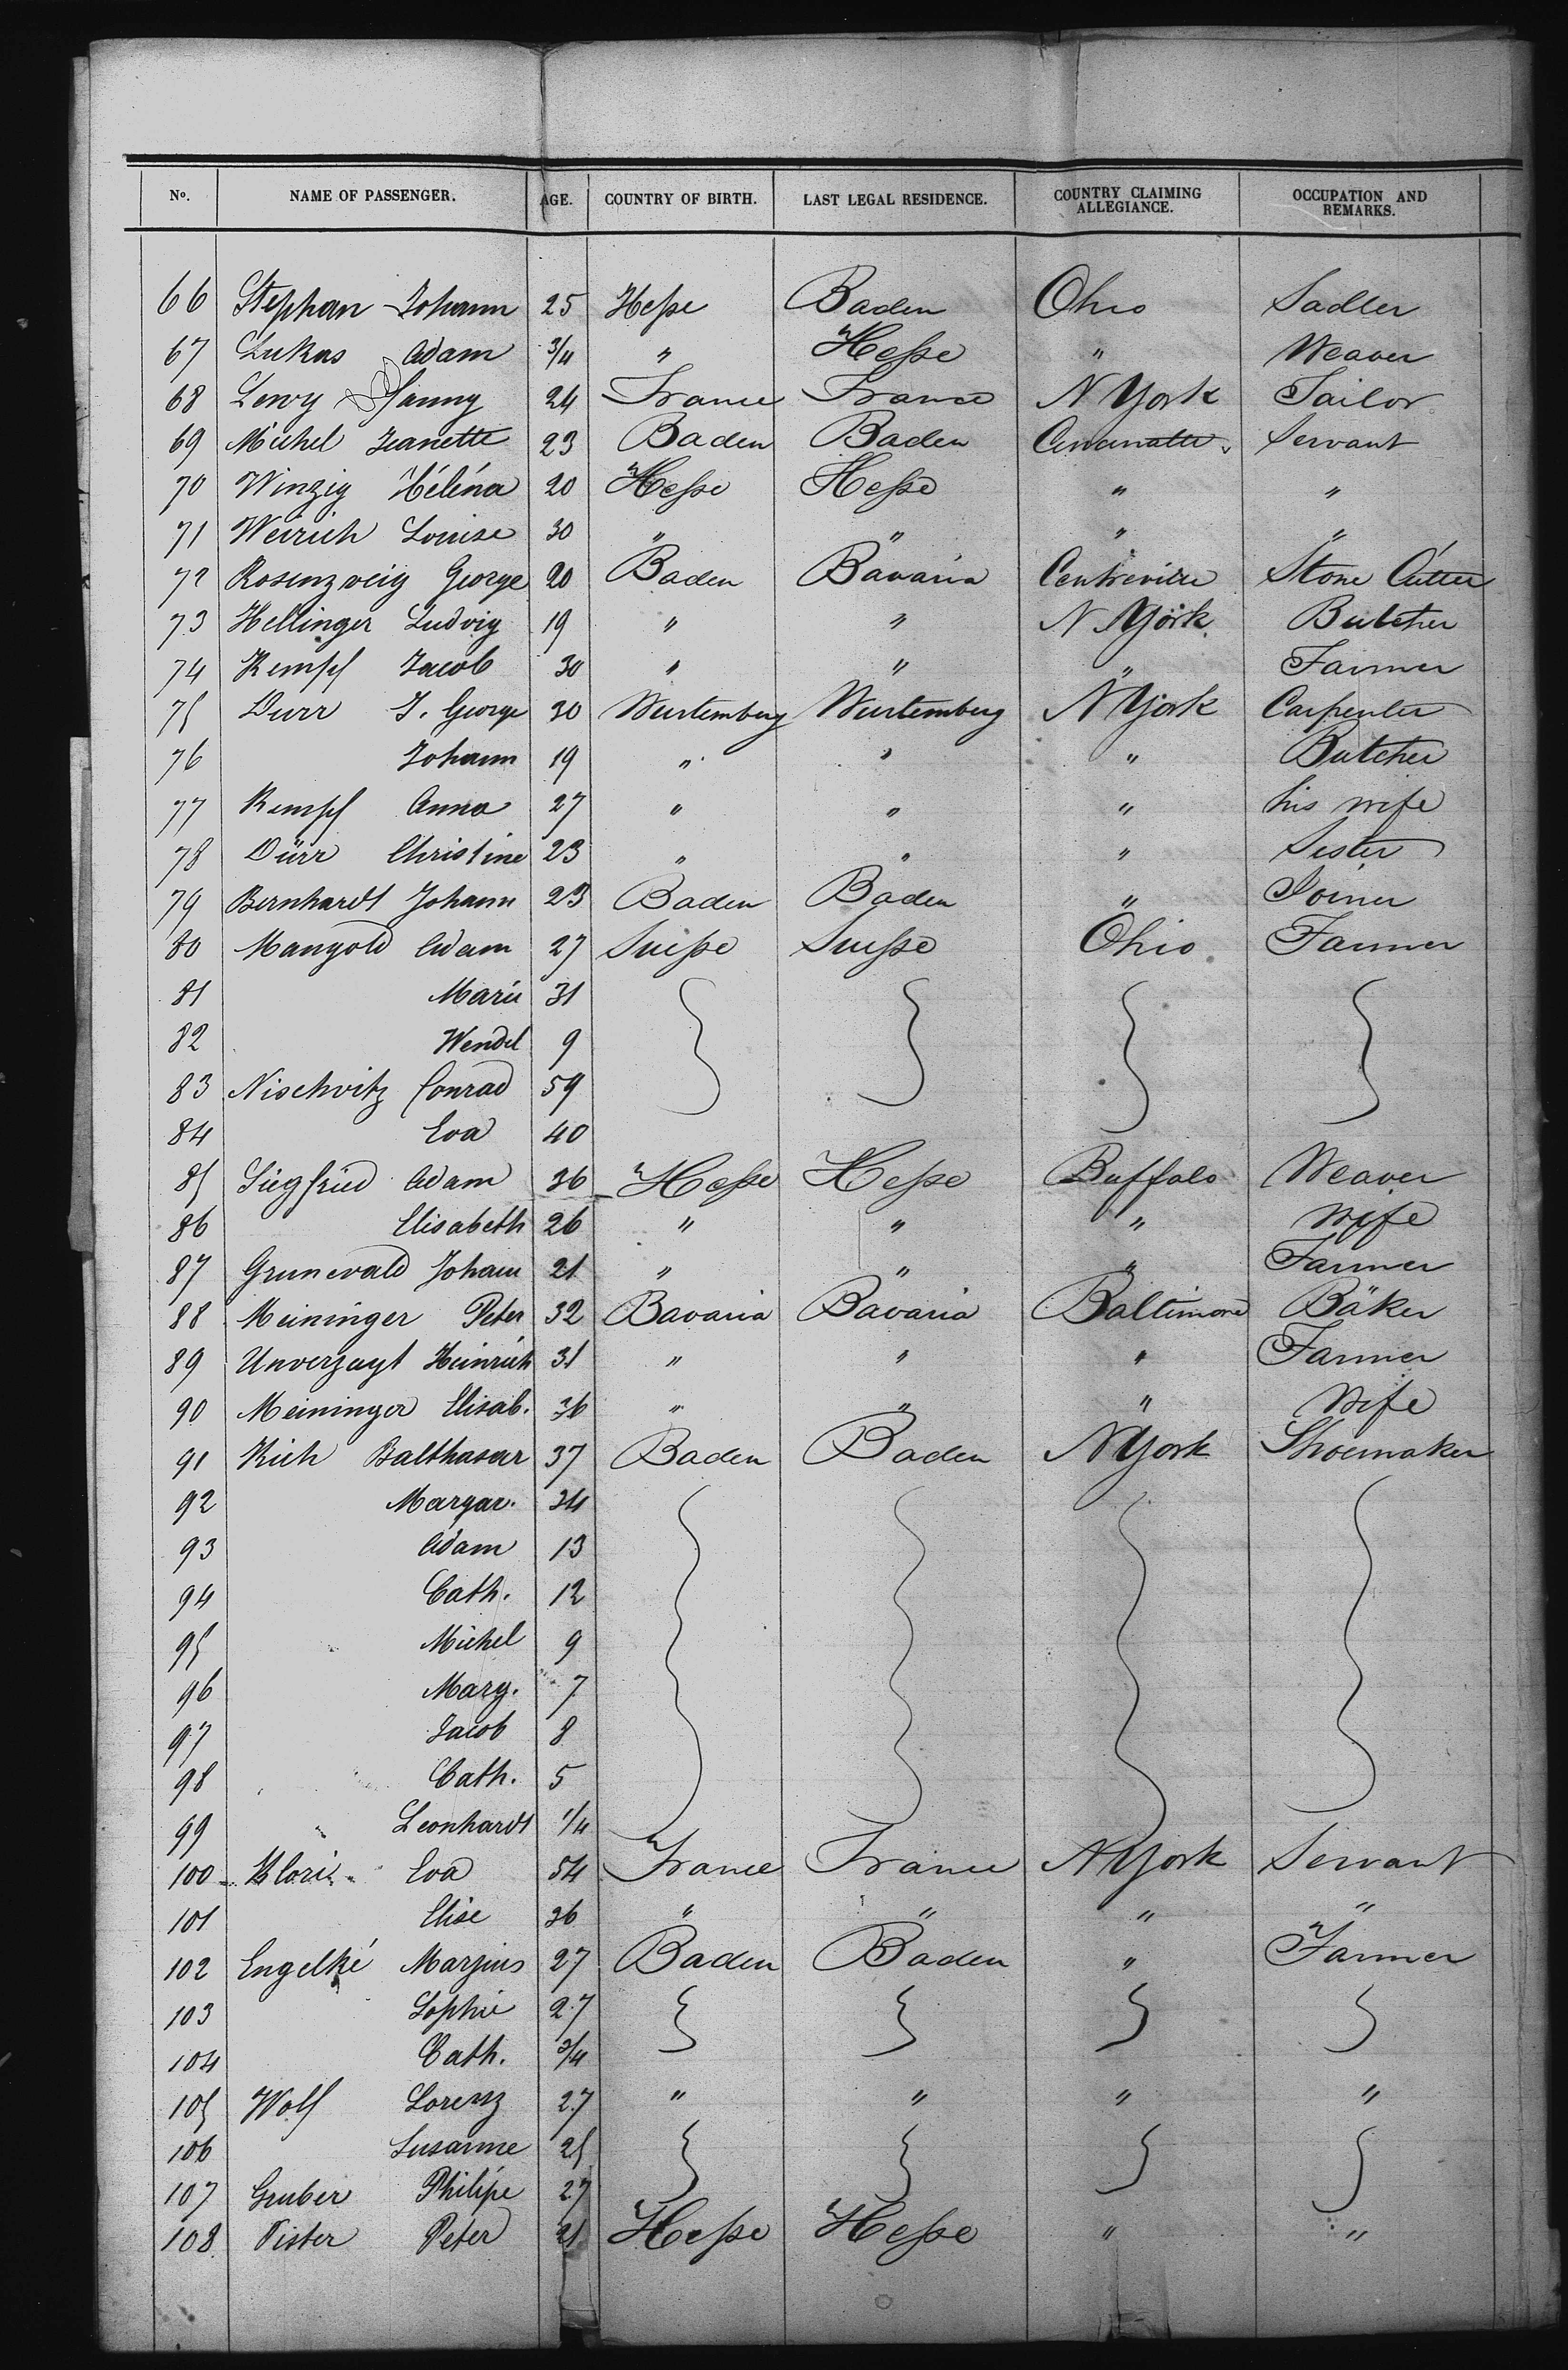 No. NAME OF PASSENGER. AGE. COUNTRY OF BIRTH. LAST LEGAL RESIDENCE. COUNTRY CLAIMING ALLEGIANCE. OCCUPATION AND REMARKS.
66 Stephan Johann 25 Hesse Baden Ohio Sadler
67 Lukas Adam 3/4 " Hesse " Weaver
68 Levy Fanny 24 France France N York Tailor
69 Michel Jeanette 23 Baden Baden Cincinatti Servant
70 Winzig Héléna 20 Hesse Hesse " "
71 Weirich Louise 30 " " " "
72 Rosenzweig George 20 Baden Bavaria Centreville Stone Cutter
73 Hellinger Ludvig 19 " " N York Butcher
74 Kempf Jacob 30 " " " Farmer
75 Durr J. George 30 Wurtemberg Wurtemberg N York Carpenter
76 Johann 19 " " " Butcher
77 Kempf Anna 27 " " " his wife
78 Dürr Christine 23 " " " Sister
79 Bernhardt Johann 23 Baden Baden " Joiner
80 Mangold Adam 27 Suisse Suisse Ohio Farmer
81 Marie 31
82 Wendel 9
83 Nischvitz Conrad 59
84 Eva 40
85 Siegfried Adam 36 Hesse Hesse Buffalo Weaver
86 Elisabeth 26 " " " wife
87 Grunevald Johann 21 " " " Farmer
88 Meininger Peter 32 Bavaria Bavaria Baltimore Bäker
89 Unverzagt Heinrich 31 " " " Farmer
90 Meininger Elisab. 36 " " " Wife
91 Kich Balthasar 37 Baden Baden N York Shoemaker
92 Margar. 34
93 Adam 13
94 Cath. 12
95 Michel 9
96 Marg. 7
97 Jacob 8
98 Cath. 5
99 Leonhardt 1/4
100 Eva 54 France France N York Servant
101 Elise 36 " " " "
102 Engelké 27 Baden Baden " Farmer
103 Sophie 27
104 Cath. 3/4
105 Wolf Lorenz 27 " " " "
106 Susanne 25
107 Gruber Philipe 27
108 Pister Peter 21 Hesse Hesse " "